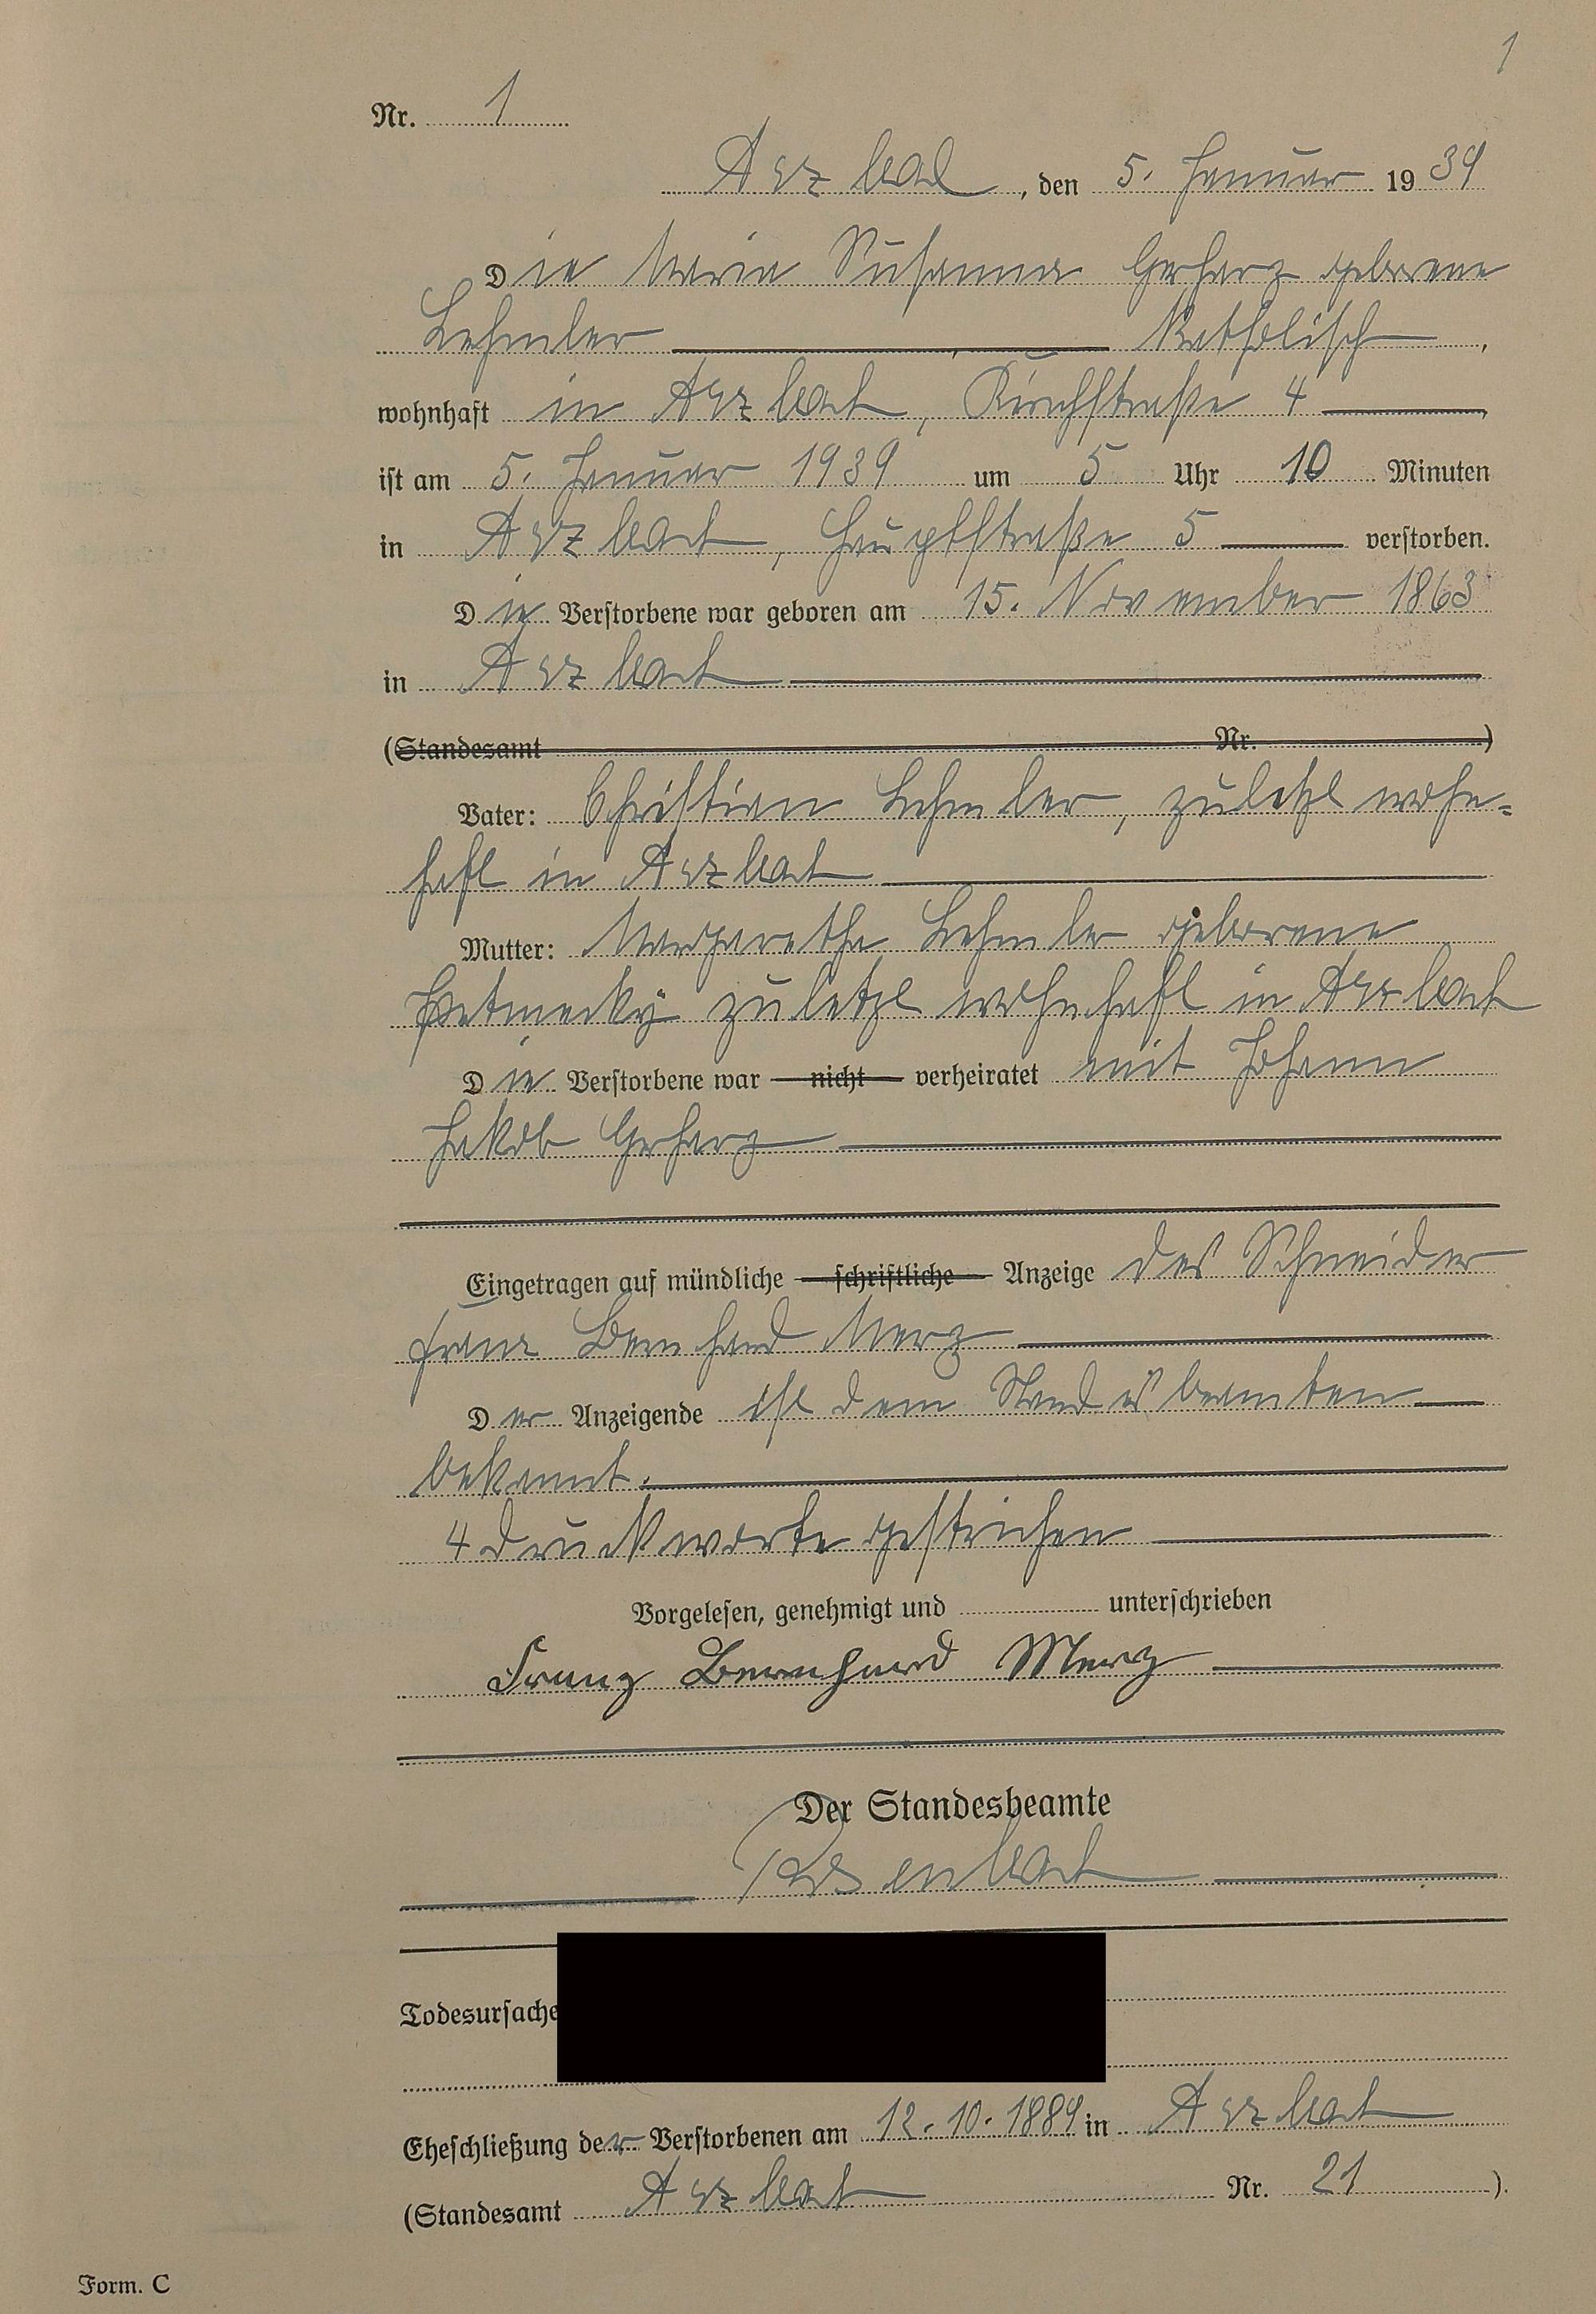 1
Nr. 1
Arzbach, den 5. Januar 1939
Die Maria Susanna Gerharz geborene
Lehmler katholisch,
wohnhaft in Arzbach, Kirchstraße 4,
ist am 5. Januar 1939 um 5 Uhr 10 Minuten
in Arzbach, Hauptstraße 5 verstorben.
Die Verstorbene war geboren am 15. November 1863
in Arzbach
(Standesamt Nr. )
Vater: Christian Lehmler, zuletzt wohn-
haft in Arzbach
Mutter: Margaretha Lehmler geborene
Petmecky zuletzt wohnhaft in Arzbach
Die Verstorbene war nicht verheiratet mit Johann
Jakob Gerharz
Eingetragen auf mündliche schriftliche Anzeige des Schneider
Franz Bernhard Merz
Der Anzeigende ist dem Standesbeamten
bekannt.
4 Druckworte gestrichen
Vorgelesen, genehmigt und unterschrieben
Franz Bernhard Merz
Der Standesbeamte
Todesursache
Eheschließung der Verstorbenen am 12.10.1889 in Arzbach
(Standesamt Arzbach Nr. 21 ).
Form. C